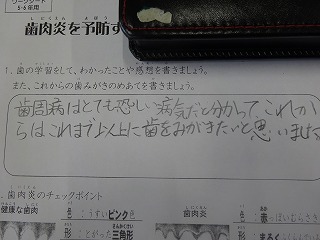 ワークシート
5・6年用
歯肉炎を予防す
1. 歯の学習をして、わかったことや感想を書きましょう。
また、これからの歯みがきのめあてを書きましょう。
歯周病はとても恐しい病気だと分かってこれか
らはこれまでより上に歯をみがきたいと思います。
. 歯肉炎のチェックポイント
健康な歯肉
色:うすいピンク色
形:とがった三角形
歯肉炎
色:赤っぽいむらさき
形:まるく